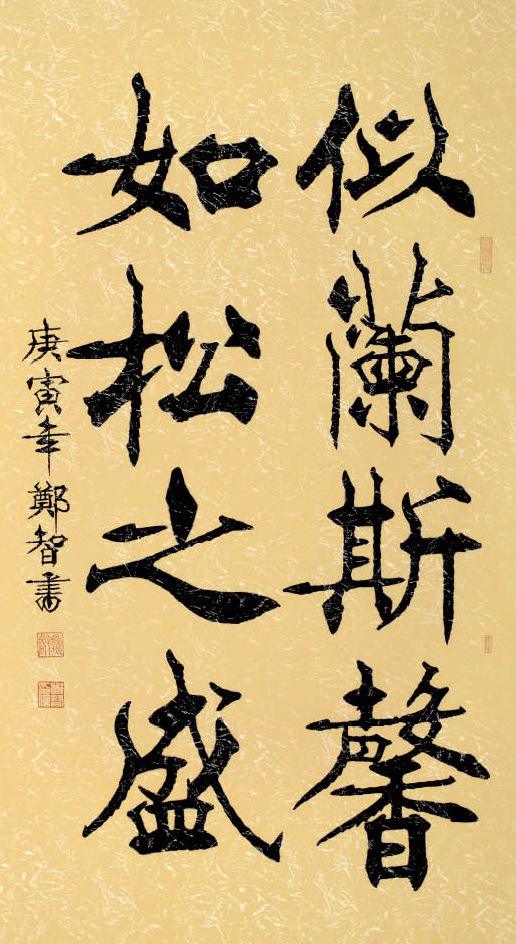 似蘭斯馨
如松之盛
庚寅年鄭智書